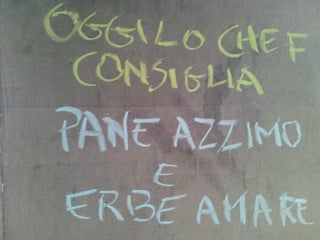 OGGI LO CHEF
CONSIGLIA
PANE AZZIMO
E
ERBE AMARE